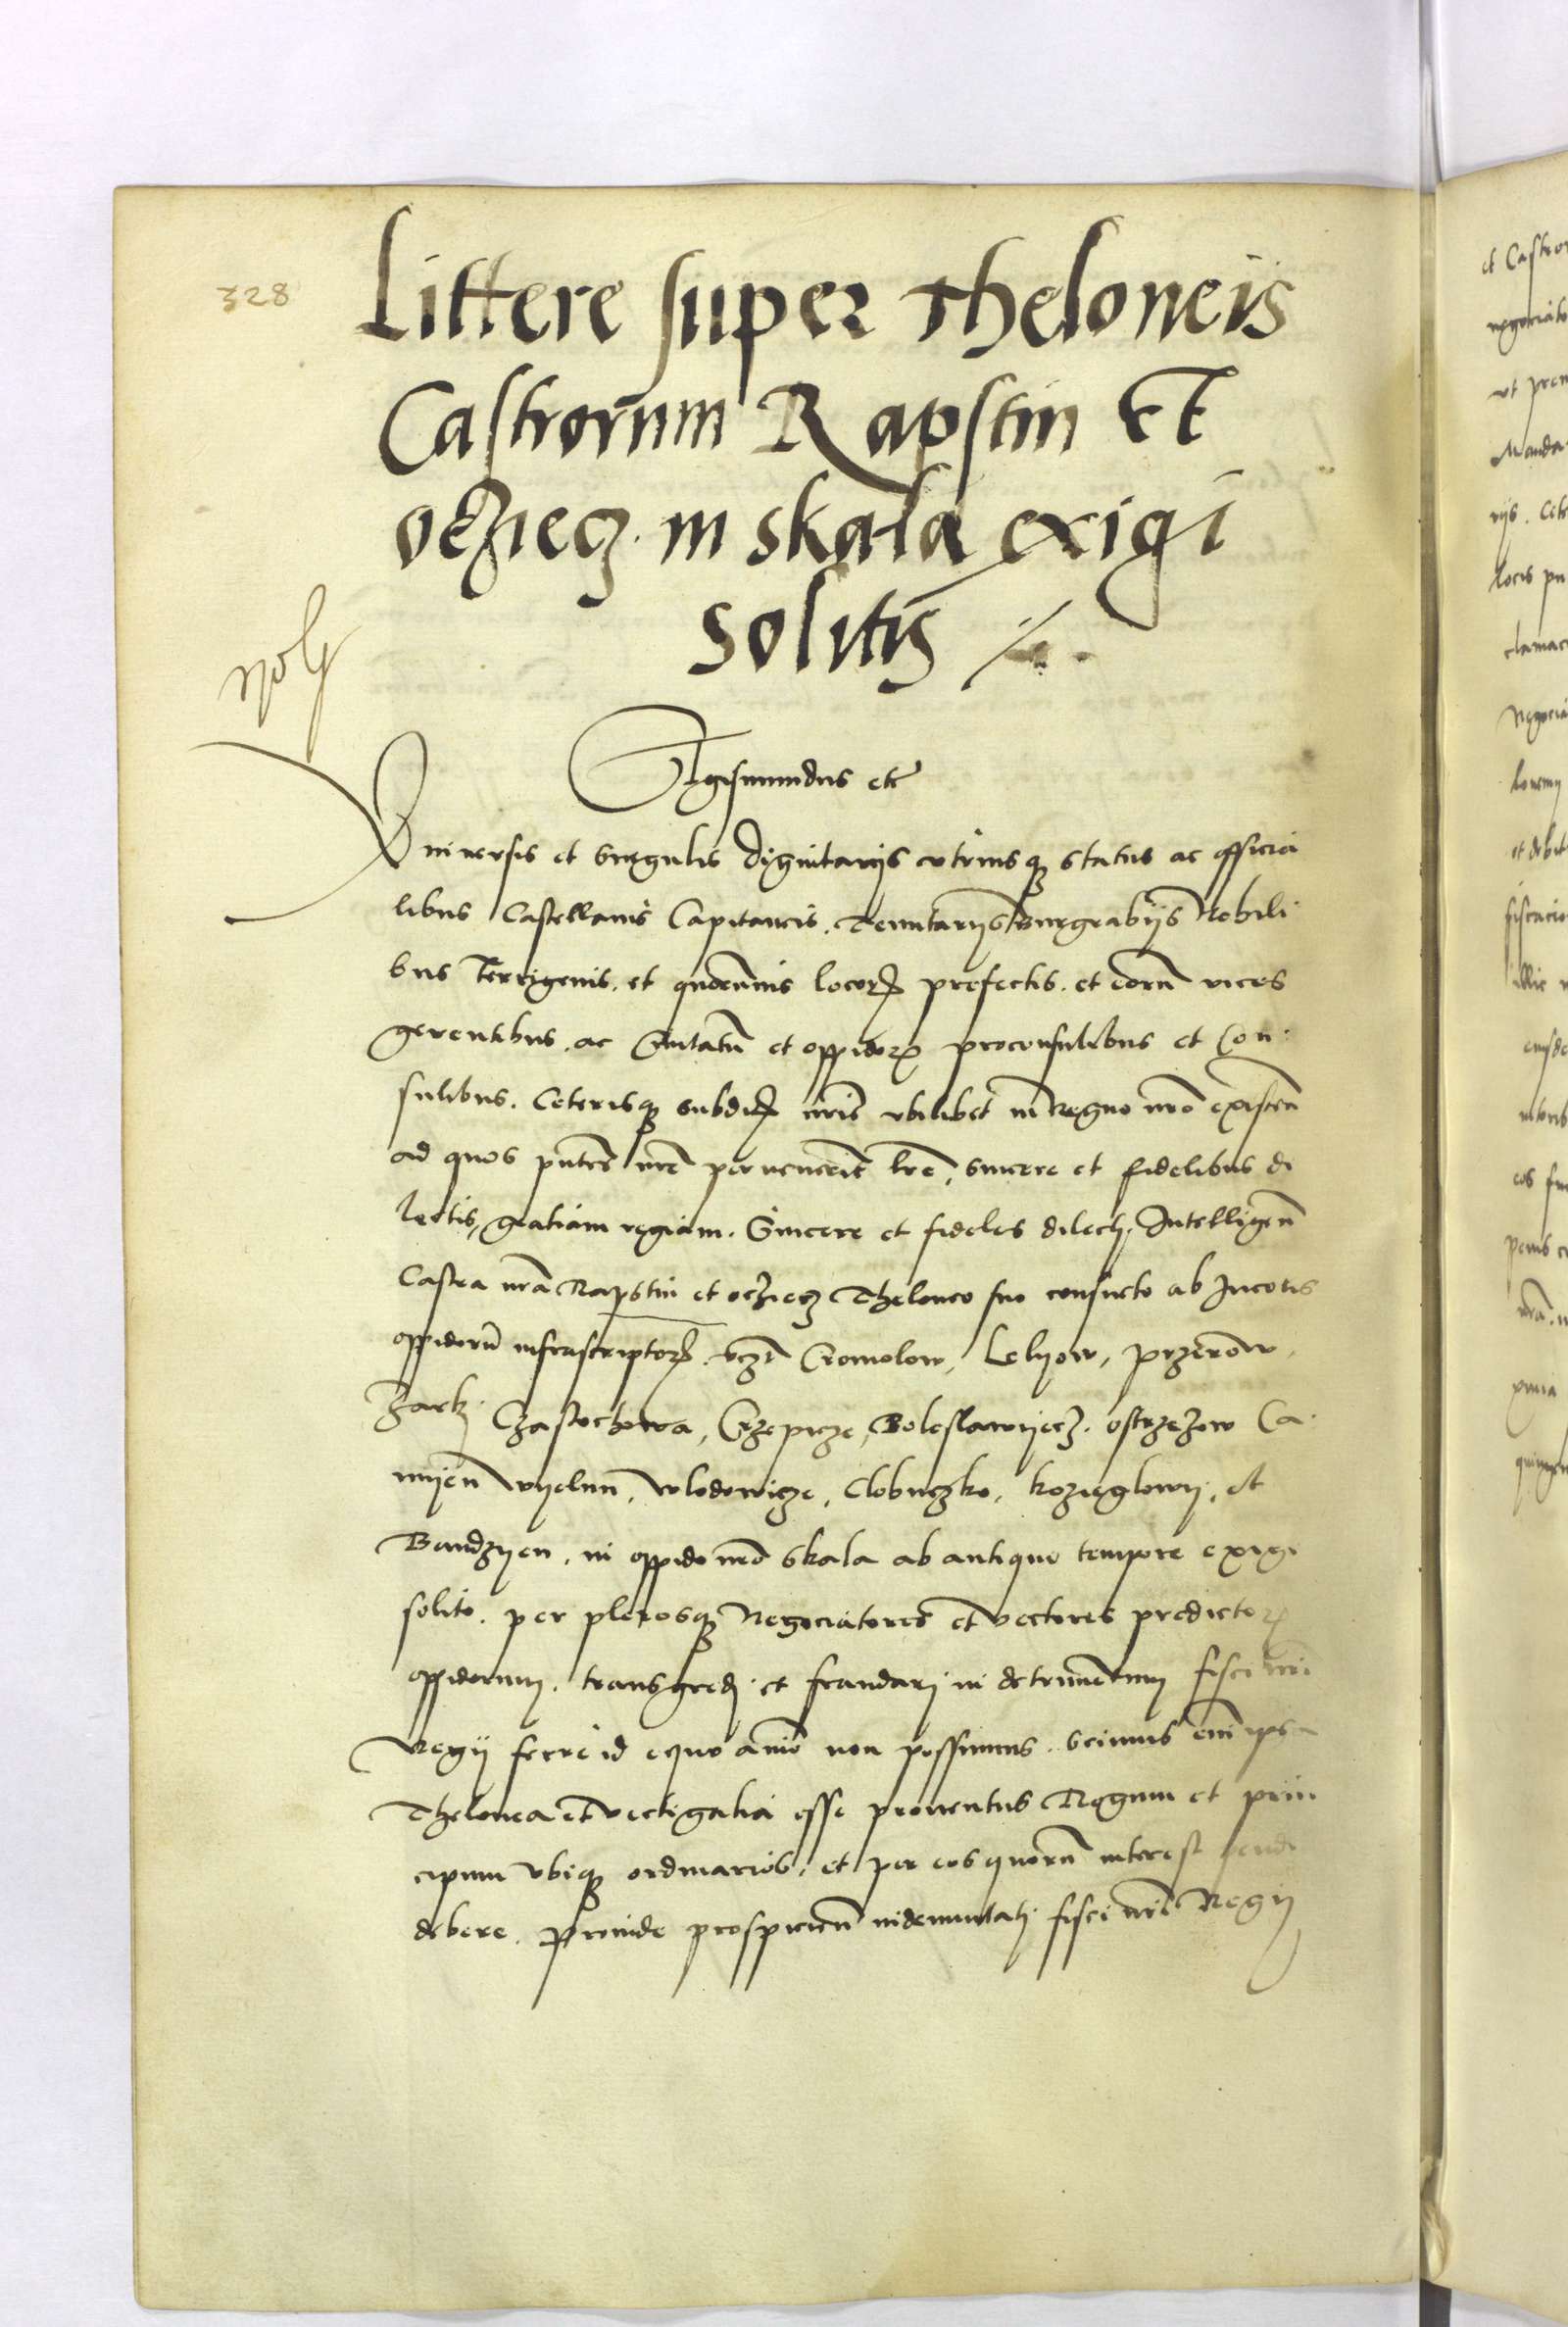 328
Littere super Theloneis
Castrorum Rapstin Et
ocziecz in skala exigi
solitis
Sigismundus etc
Vniuersis et singulis dignitarijs vtriusq status ac officia
libus Castellanis Capitaneis Tenutarijs Burgrabijs Nobili
bus Terrigenis et quorumuis locor prefectis et eorum vices
gerentibus ac Ciuitatum et oppidor proconsulibus et Con
sulibus Ceterisq subditis nris vbilibet in Regno nro existen
ad quos pntes nre peruenerit lre sincere et fidelibus di
lectis gratiam regiam Sincere et fideles dilecti Intelligen
Castra nra Rapstin et ocziecz Theloneo suo consueto ab Incolis
oppidorum infrascriptor vzt Cromolow Lelyow przerow
Zarki Czastochowa Crzepicze Boleslawyecz ostrzezow Ca
myen wyelun wlodowicze Clobuczko kozieglowy et
Bandzyen in oppido nro skala ab antiquo tempore exigi
solito per plerosq Negociatores et vectores predictor
oppidorum transgredi et fraudari in detrimentum fisci nri
Regij ferre id equo animo non possimus scimus eni ipsa
Thelonea et vectigalia esse prouentus Regum et prin
cipum vbiq ordinarios et per eos quorum interest pendi
debere Proinde prospicien indemnitati fisci nri Regij
et Castror
negociato
vt prem
Manda
rijs Cete
locis pu
clamac
Negocia
et debit
illic
eos
nra